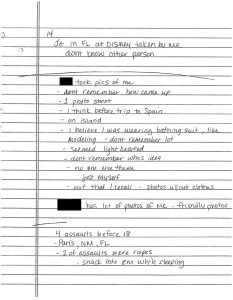 14
JE in FL at Disney taken by me
dont know other person
took pics of me
- dont remember how came up
- 1 photo shoot
- I think before trip to Spain
- on island
- I believe I was wearing bathing suit, like
modeling - dont remember lot
- seemed lighthearted
- dont remember whos idea
- no one else there
just myself
- not that I recall - photos w/out clothes
has lot of photos of me - friendly photos
4 assaults before 18
- Paris, NM, FL
- 2 of assaults were rapes
- snuck into rm while sleeping